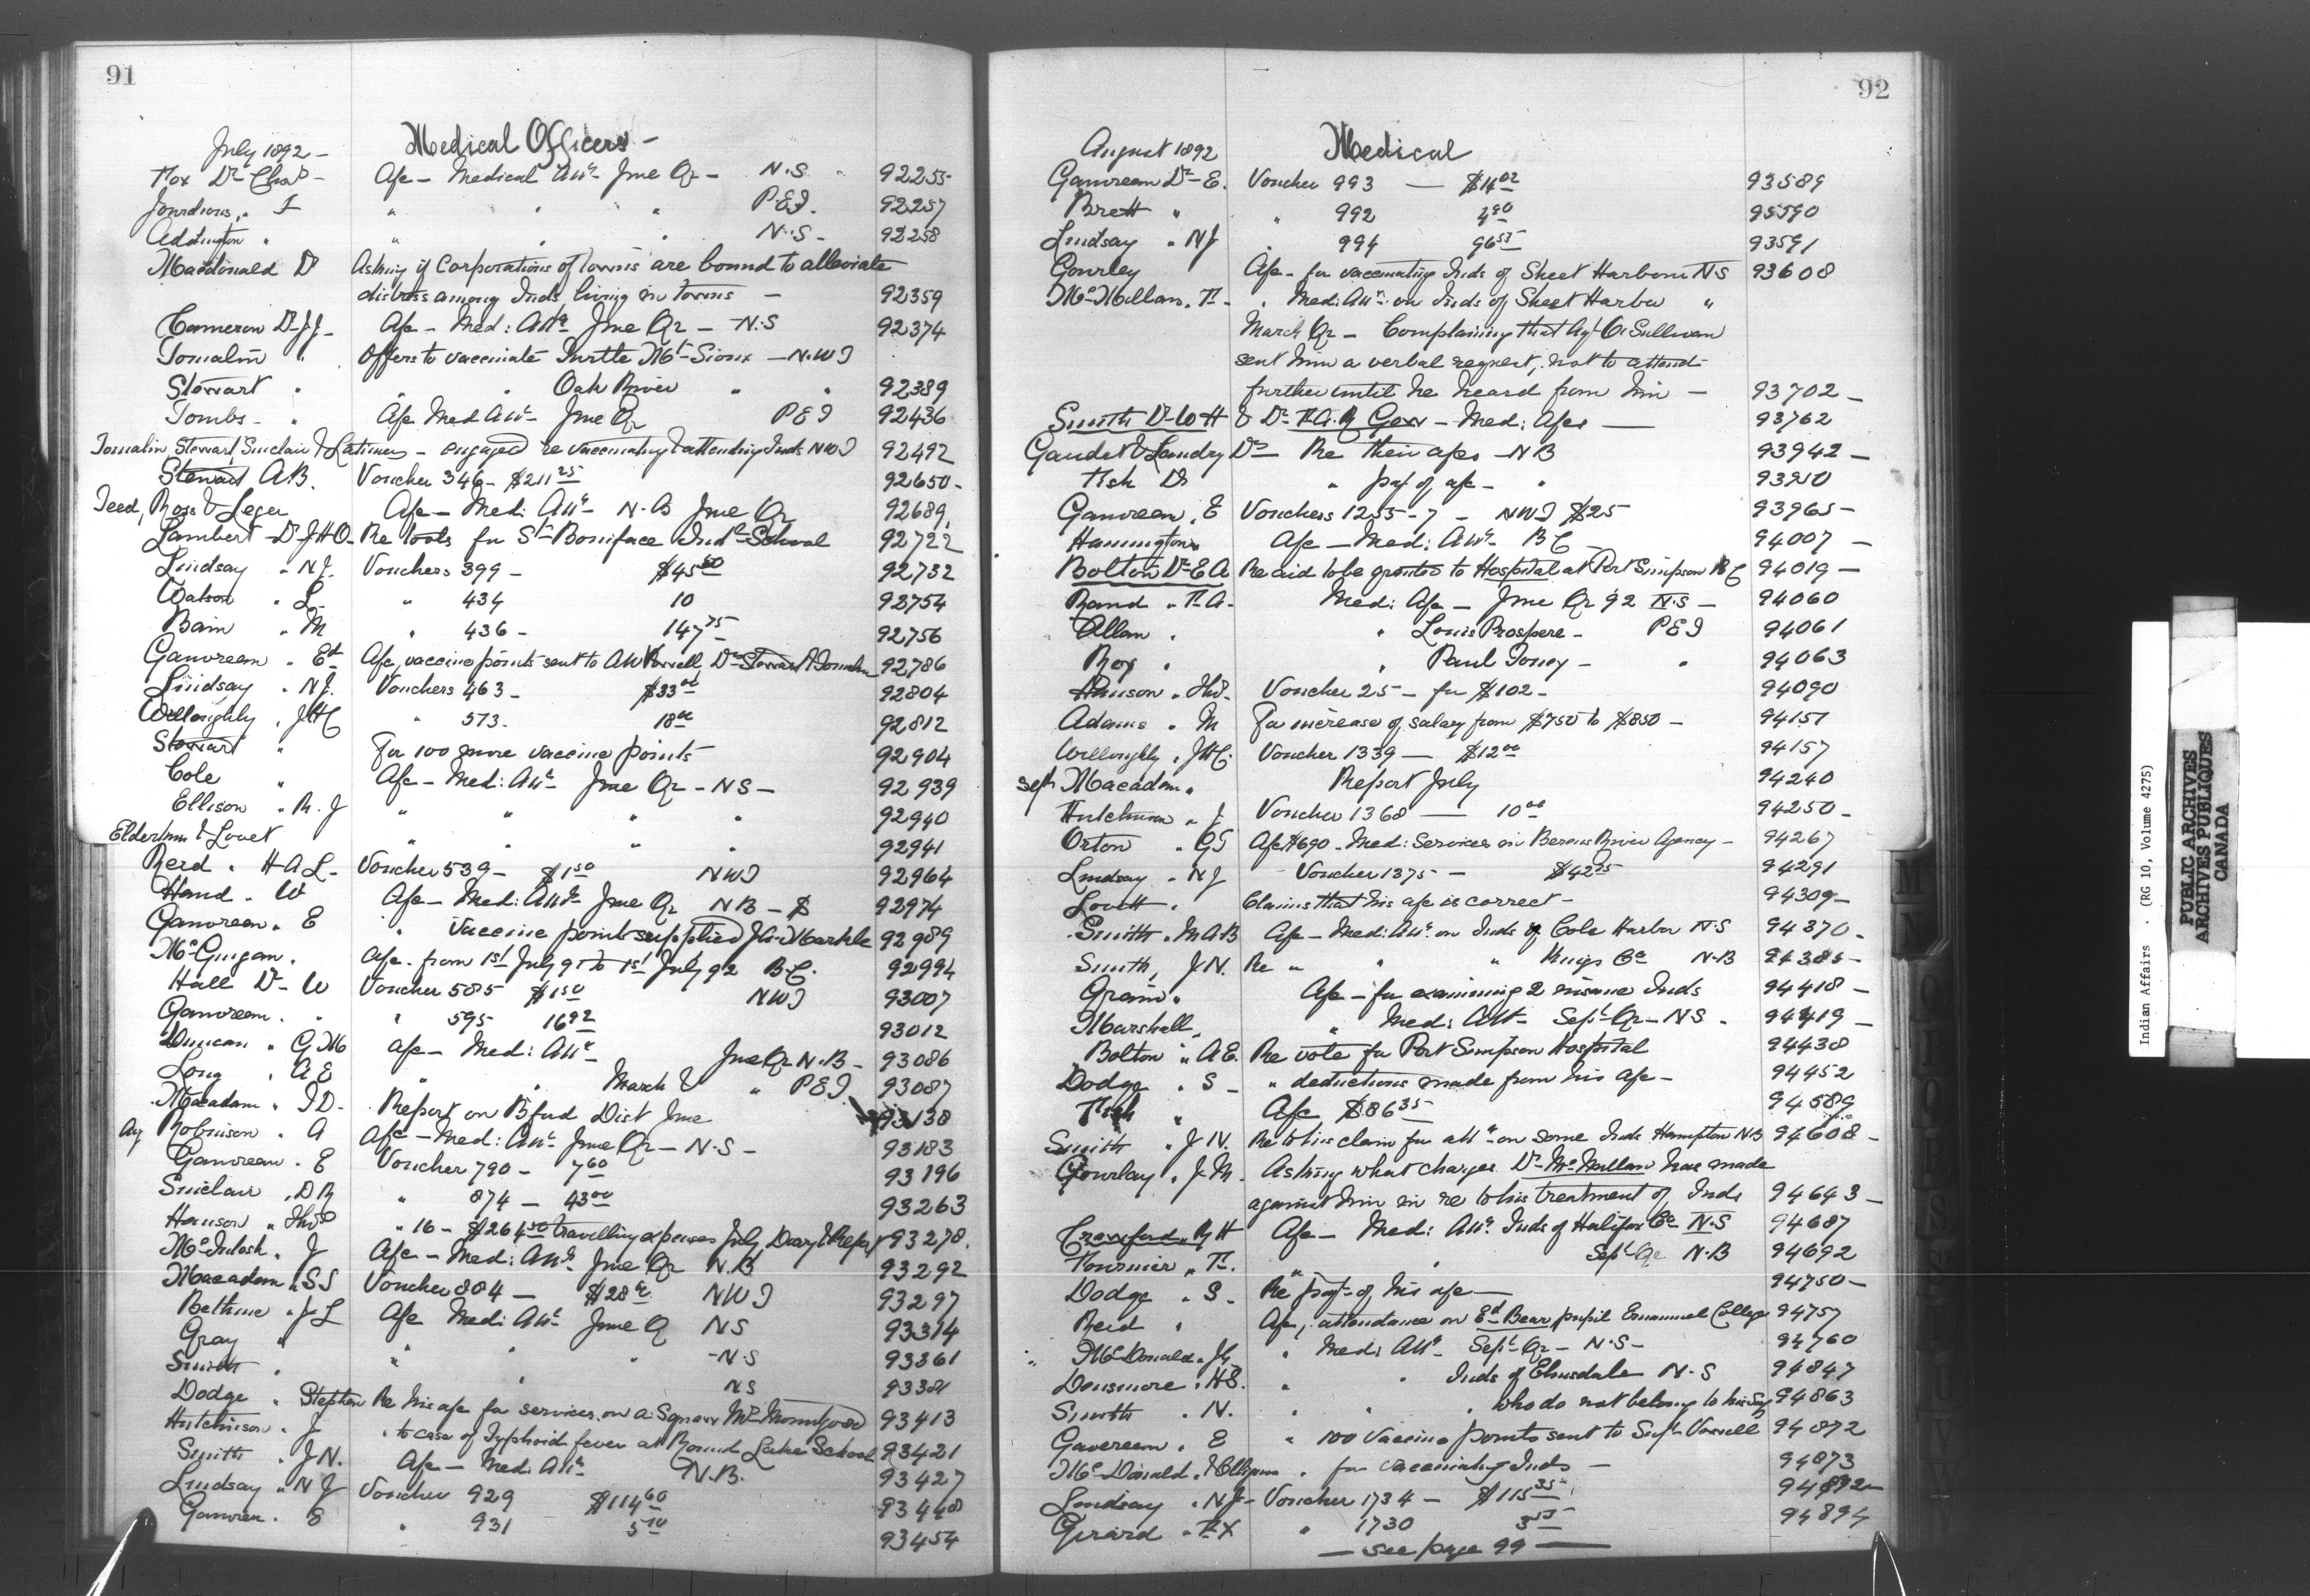 91
July 1892 - Medical Officers -
Fox Dr Chas - A/c - Medical Attce June Qr - N.S. 92255
Jourdious, " F " " " P.E.I. 92257
Addington " " " " N.S - 92258
Macdonald D Asking if Corporations of towns are bound to alleviate
distress among Inds living in towns - 92359
Cameron Dr J.J - A/c - Med: Attce June Qr - N.S 92374
Tomalin " Offers to vaccinate Turtle Mt - Sioux - N.W.T
Stewart " " " Oak River " " 92389
Tombs - " A/c Med Attce June Qr P E I 92436
Tomalin, Stewart, Sinclair & Latimer - engaged re vaccinating & attending Inds NWT 92492
Stewart A.B. Voucher 346 - $211 25 92650 -
Teed, Ross & Leger A/c - Med: Attce - N.B June Qr 92689
Lambert - Dr J H O - Re tools for St Boniface Indl School 92722
Lindsay " N J. Vouchers 399 - $45 50 92732
Watson " L " 434 10 92754
Bain " M " 436 - 147 75 92756
Gauvreau " Ed A/c, vaccine points sent to AW Vowell, Drs Stewart & Tomalin 92786
Lindsay " N J. Vouchers 463 - $33 00 92804
Willoughby " J H C " 573. 18 00 92812
Stewart " For 100 more vaccine points 92904
Cole " A/c - Med: Attce June Qr - N S - 92939
Ellison " R. J " " " " 92940
Elderkin & Lovett " " " " 92941
Reid " H A L - Voucher 539 - $1 50 N W T 92964
Hand " W A/c - Med: Attce June Qr N B - $ 92974
Gauvreau " E " Vaccine points supplied J. A. Markle 92989
McGuigan " A/c - from 1st July 91 to 1st July 92 B.C. 92994
Hall Dr W Voucher 585 $1 50 N W T 93007
Gauvreau " " " 595 16 92 93012
Duncan " G M A/c - Med: Attce June Qr N.B - 93086
Long " A E " " March & " P E I 93087
Macadam " I D - Report on Bfurd Dist June 93138
Aug Robinson " A A/c - Med: Attce June Qr - N.S - 93183
Gauvreau " E Voucher 790 - 7 60 93196
Sinclair " D R " 874 - 43 00 93263
Hanson " Thos " 16 - $264 50 travelling expenses July Diary & Report 93278.
McIntosh " J A/c - Med: Attce June Qr N.B 93292
Macadam " S S Voucher 884 - $28 00 N W T 93297
Bethune " J L A/c Med: Attce June Q N S 93314
Gray " " " " - N.S 93361
Smith " " N S 93381
Dodge " Stephen Re his a/c for services on a Squaw Mrs 93413
Hutchinson " J " to case of Typhoid fever at Round Lake School 93421
Smith " J N. A/c - Med: Attce N.B. 93427
Lindsay " N J Voucher 929 $114 60 93448
Gauvreau " E " 931 5 10 93454
92
August 1892 Medical
Gauvreau Dr - E. Voucher 993 - $14 02 93589
Brett " " 992 4 90 93590
Lindsay " N J " 994 96 55 93591
Gourley A/c - for vaccinating Inds of Sheet Harbour N S 93608
McMillan " F - " Med: Attce on Inds of Sheet Harbor "
March Qr - Complaining that Agt O'Sullivan
sent him a verbal request, not to attend
further until he heard from him - 93702 -
Smith Dr W H & Dr F. A. R Gow - Med: A/cs - 93762
Gaudet & Landry Drs - Re their a/cs - N B 93942 -
Fish Dr " pay of a/c - " 93950
Gauvreau " E Vouchers 1255 - 7 - N W T $25 93965 -
Hannington " A/c - Med: Attce B C 94007 -
Bolton Dr E A Re aid to be granted to Hospital at Port Simpson B C 94019 -
Rand " F. A - Med: A/c - June Qr 92 N.S - 94060
Allan " " Louis Prospere - P E I 94061
Roy " " Paul Toney - " 94063
Hanson " Thos - Voucher 25 - for $102 - 94090
Adams " M For increase of salary from $750 to $850 - 94151
Willoughby " J H C. Voucher 1339 - $12 00 94157
Sept Macadam " Report July 94240
Hutchinson " J Voucher 1368 - 10 00 94250 -
Orton " G T A/c $690 - Med: Services in Berens River Agency - 94267
Lindsay " N J Voucher 1375 - $42 75 94291
Lovett " Claims that his a/c is correct - 94309 -
Smith " M A B A/c - Med: Attce on Inds of Cole Harbor N S 94370 -
Smith, J N. Re " " " Kings Co N.B 94385 -
Grain " A/c - for examining 2 insane Inds 94418 -
Marshall " " Med: Att - Sept Qr - N S - 94419 -
Bolton " A E. Re vote for Port Simpson Hospital 94438
Dodge " S - " deductions made from his a/c - 94452
Fish " A/c $86 35 94589
Smith " J N. Re to his claim for attce on some Inds Hampton N B 94608 -
Gourlay " J. M. Asking what charges Dr McMillan has made
against him in re to his treatment of Inds 94643 -
Crawford " R H A/c - Med: Attce Inds of Halifax Co N.S 94687
Fournier " F. " " Sept Qr N.B 94692
Dodge " S - Re payt of his a/c - 94750 -
Reid " A/c, attendance on Ed Bear, pupil Emanuel College 94757
McDonald " J " Med: Attce Sept Qr - N.S - 94760
Densmore " H B. " " Inds of Elmsdale N.S 94847
Smith " N. " " " who do not belong to his 94863
Gauvreau " E " 100 Vaccine points sent to Supt Vowell 94872
McDonald & Ellison " for vaccinating Inds - 94873
Lindsay " N J - Voucher 1734 - $115 35 94892 -
Girard " F X " 1730 3 55 94894
- see page 99 -
Indian Affairs . (RG 10, Volume 4275)
PUBLIC ARCHIVES
ARCHIVES PUBLIQUES
CANADA